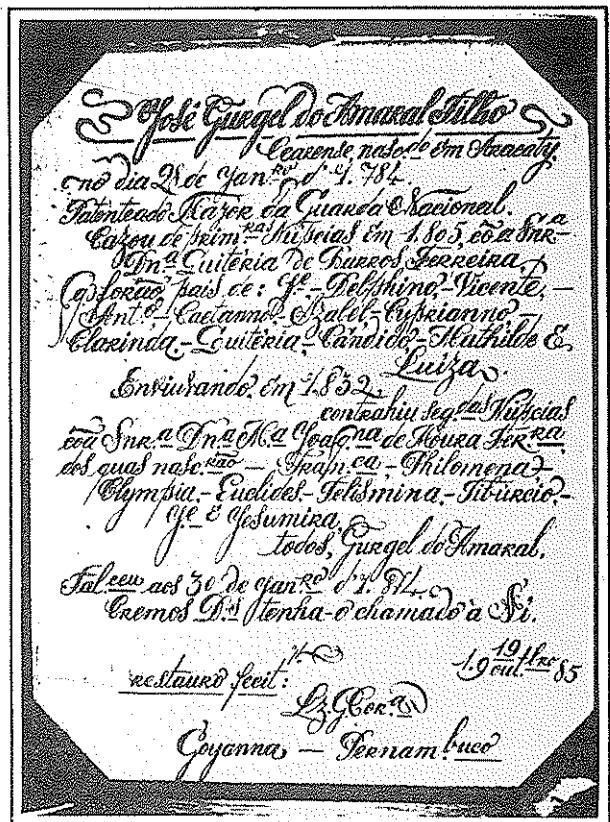 José Gurgel do Amaral Filho
Cearense, nasc.do em Aracaty,
no dia 21 de Jan.ro d' 1.784.
Patenteado Major da Guarda Nacional.
Cazou de prim.ras Nupcias em 1.805, cõ a Snr.a
Dn.a Quitéria de Barros Ferreira,
e forão pais de: Je.- Delphino,- Vicente,-
Ant.o- Caetanno,- Izabel- Cyprianno-
Clarinda,- Quitéria,- Cândido,- Mathilde &
Luiza.
Enviuvando, em 1.832,
contrahiu seg.das Nupcias
cõ a Snr.a Dn.a M.a Joaq.na de Moura Ferr.ra,
dos quas nasc.rão — Philomena,-
Olympia,- Euclides- Felismina,- Tibúrcio,-
Je. & Jesumira,
todos, Gurgel do Amaral.
Fal.ceu aos 30 de Jan.ro d' 1.874.
Cremos D.s tenha-o chamado à Si.
restauro fecit: 19
1.9 out.bro 85
Lz.G.Cor.a
Goyanna — Pernambuco